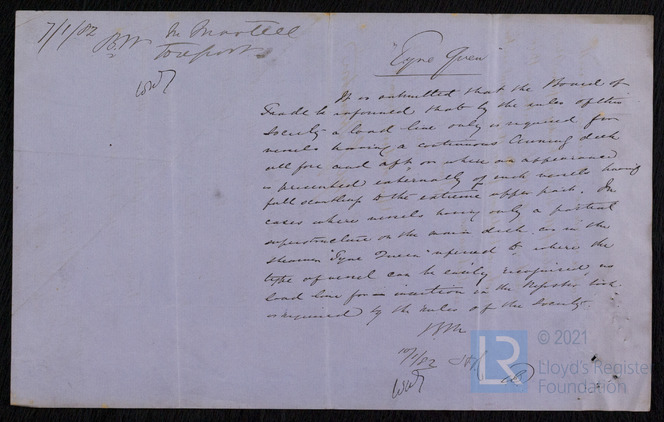 7/1/82
B.M Mr Martell
To report
"Tyne Queen"
It is submitted that the Board of
Trade be informed that by the rules of this
Society a load line only is required for
vessels having a continuous Awning deck
all fore and aft, or where an appearance
is presented externally of such vessels having
full scantlings to the extreme upper part. In
cases where vessels having only a partial
superstructure on the main deck as in the
steamer "Tyne Queen" referred to, where the
type of vessel can be easily recognised, no
load line for insertion in the Register Book
is required by the Rules of the Society.
BM
10/1/82
© 2021
LR
Lloyd's Register
Foundation